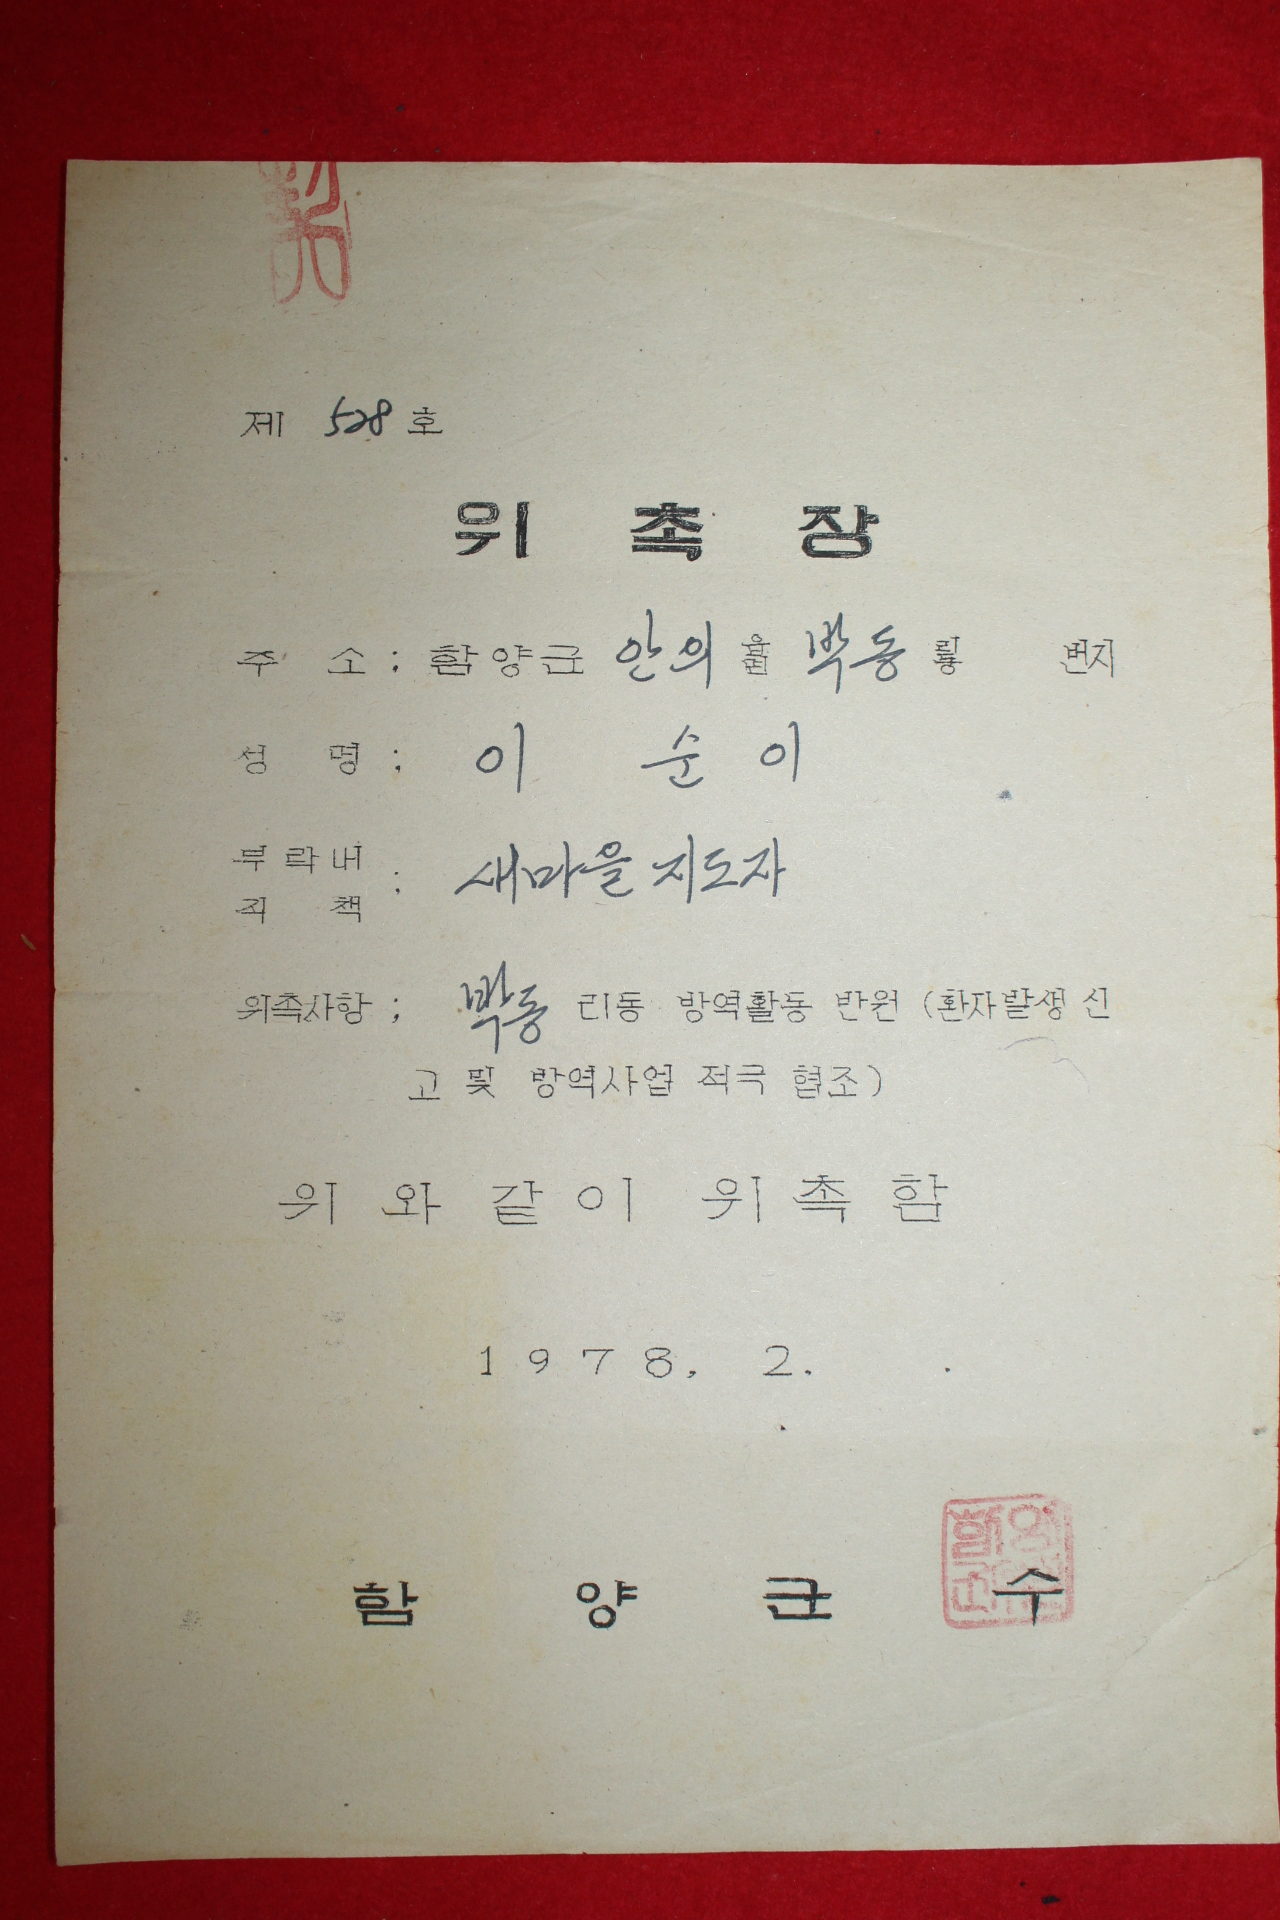 제 528 호
위 촉 장
주 소 ; 함양군 안의 읍면 박동 리동 번지
성 명 ; 이 순 이
부락내
직 책 ; 새마을 지도자
위촉사항 ; 박동 리동 방역활동 반원 (환자발생 신
고 및 방역사업 적극 협조)
위 와 같 이 위 촉 함
1978. 2. .
함 양 군 수